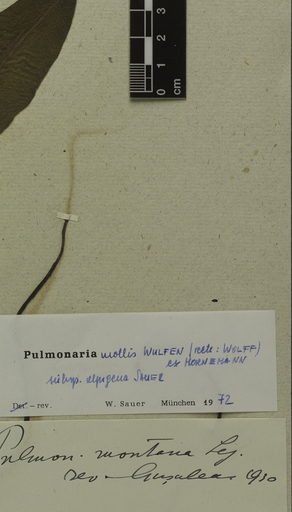 0 1 2 3
cm
Pulmonaria mollis WULFEN (recte: WOLFF)
ex HORNEMANN
subsp. alpigena SAUER
Det. – rev. W. Sauer München 1972
Pulmon. montana Lej.
rev 1930